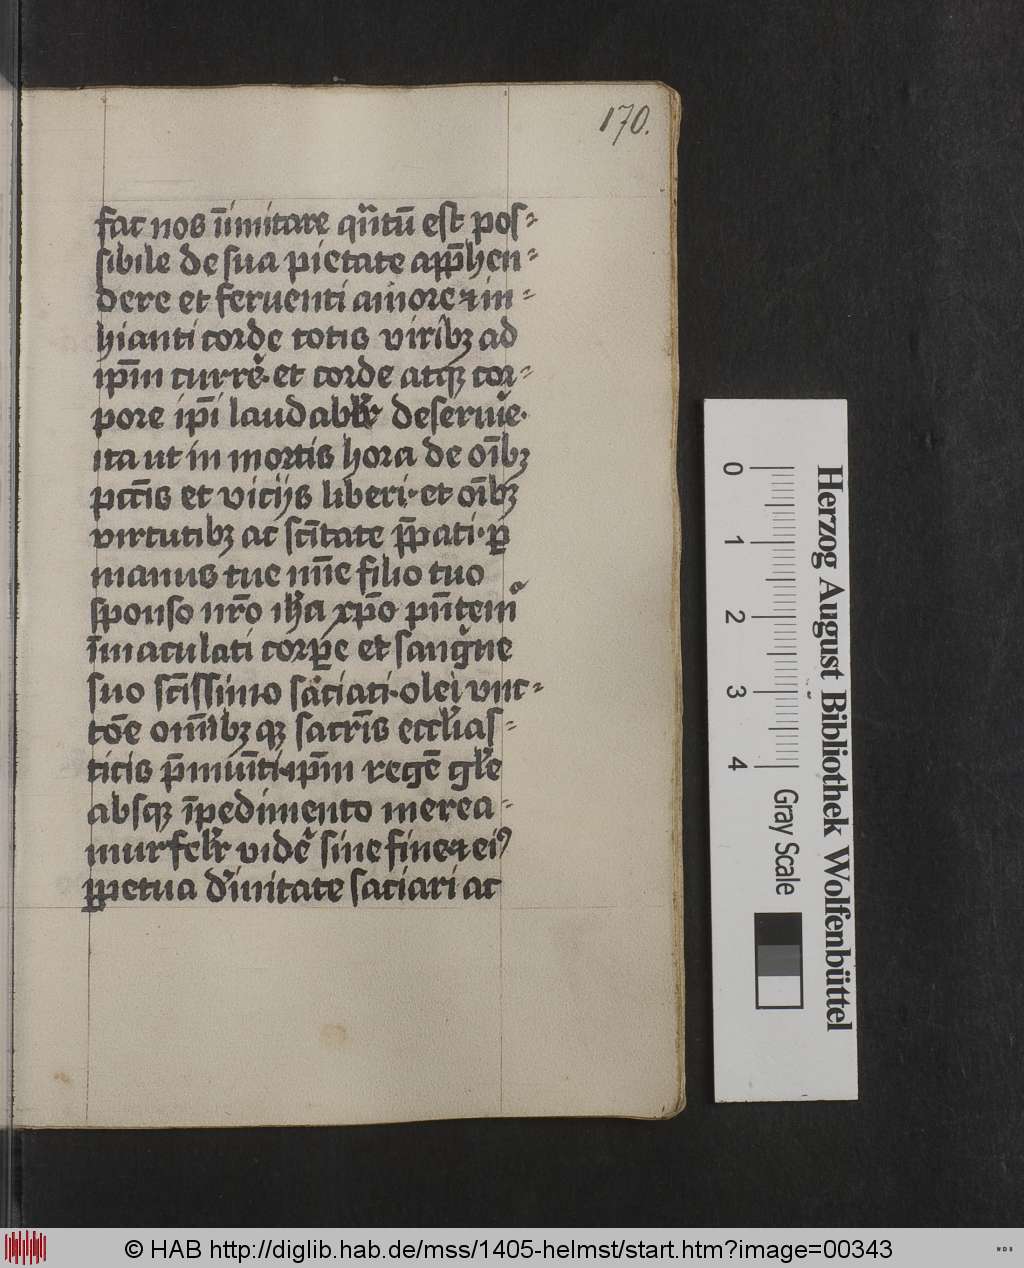 170.
fac nos ūimitare qͥtū est pos⸗
sibile de sua pietate app̄hen⸗
dere et feruenti amore ⁊ in⸗
hianti corde totis viribꝫ ad
ip̄m curre᷑· et corde atqꝫ cor⸗
pore ip̄i laudablr deserui᷑e·
ita ut in mortis hora de oībꝫ
pcc̄is et vicijs liberi· et oībꝫ
virtutibꝫ ac sc̄itate p̄pati· ꝑ
manus tue mīe filio tuo
sponso nr̄o ih̄u xp̄o pn̄tem᷑
īmaculati corꝑe et sangͥne
suo sc̄issimo saͨciati· olei vnc⸗
tōe om̄ibꝫ qꝫ sacrīs eccl̄ias⸗
ticis p̄muīti· ip̄m regē gl̄e
absqꝫ īpedimento merea⸗
mur felr̄ vide᷑ sine fine ⁊ eiꝰ
ꝑpetua dͥinitate saciari ac
0 1 2 3 4
Herzog August Bibliothek Wolfenbüttel
Gray Scale
© HAB http://diglib.hab.de/mss/1405-helmst/start.htm?image=00343